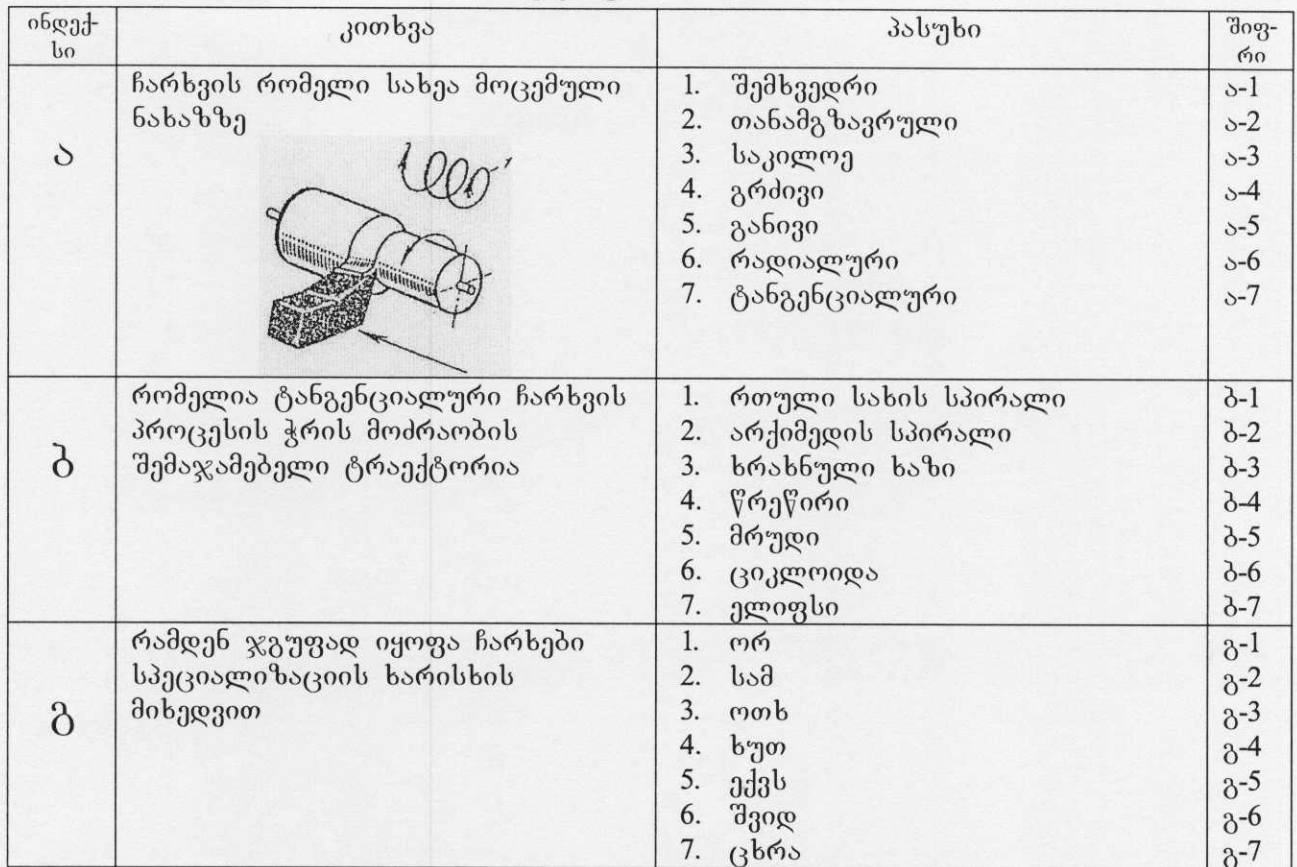 ინდექ-
სი
კითხვა
პასუხი
შიფ-
რი
ა
ჩარხვის რომელი სახეა მოცემული
ნახაზზე
1
1. შემხვედრი
2. თანამგზავრული
3. საკილოე
4. გრძივი
5. განივი
6. რადიალური
7. ტანგენციალური
ა-1
ა-2
ა-3
ა-4
ა-5
ა-6
ა-7
ბ
რომელია ტანგენციალური ჩარხვის
პროცესის ჭრის მოძრაობის
შემაჯამებელი ტრაექტორია
1. რთული სახის სპირალი
2. არქიმედის სპირალი
3. ხრახნული ხაზი
4. წრეწირი
5. მრუდი
6. ციკლოიდა
7. ელიფსი
ბ-1
ბ-2
ბ-3
ბ-4
ბ-5
ბ-6
ბ-7
გ
რამდენ ჯგუფად იყოფა ჩარხები
სპეციალიზაციის ხარისხის
მიხედვით
1. ორ
2. სამ
3. ოთხ
4. ხუთ
5. ექვს
6. შვიდ
7. ცხრა
გ-1
გ-2
გ-3
გ-4
გ-5
გ-6
გ-7